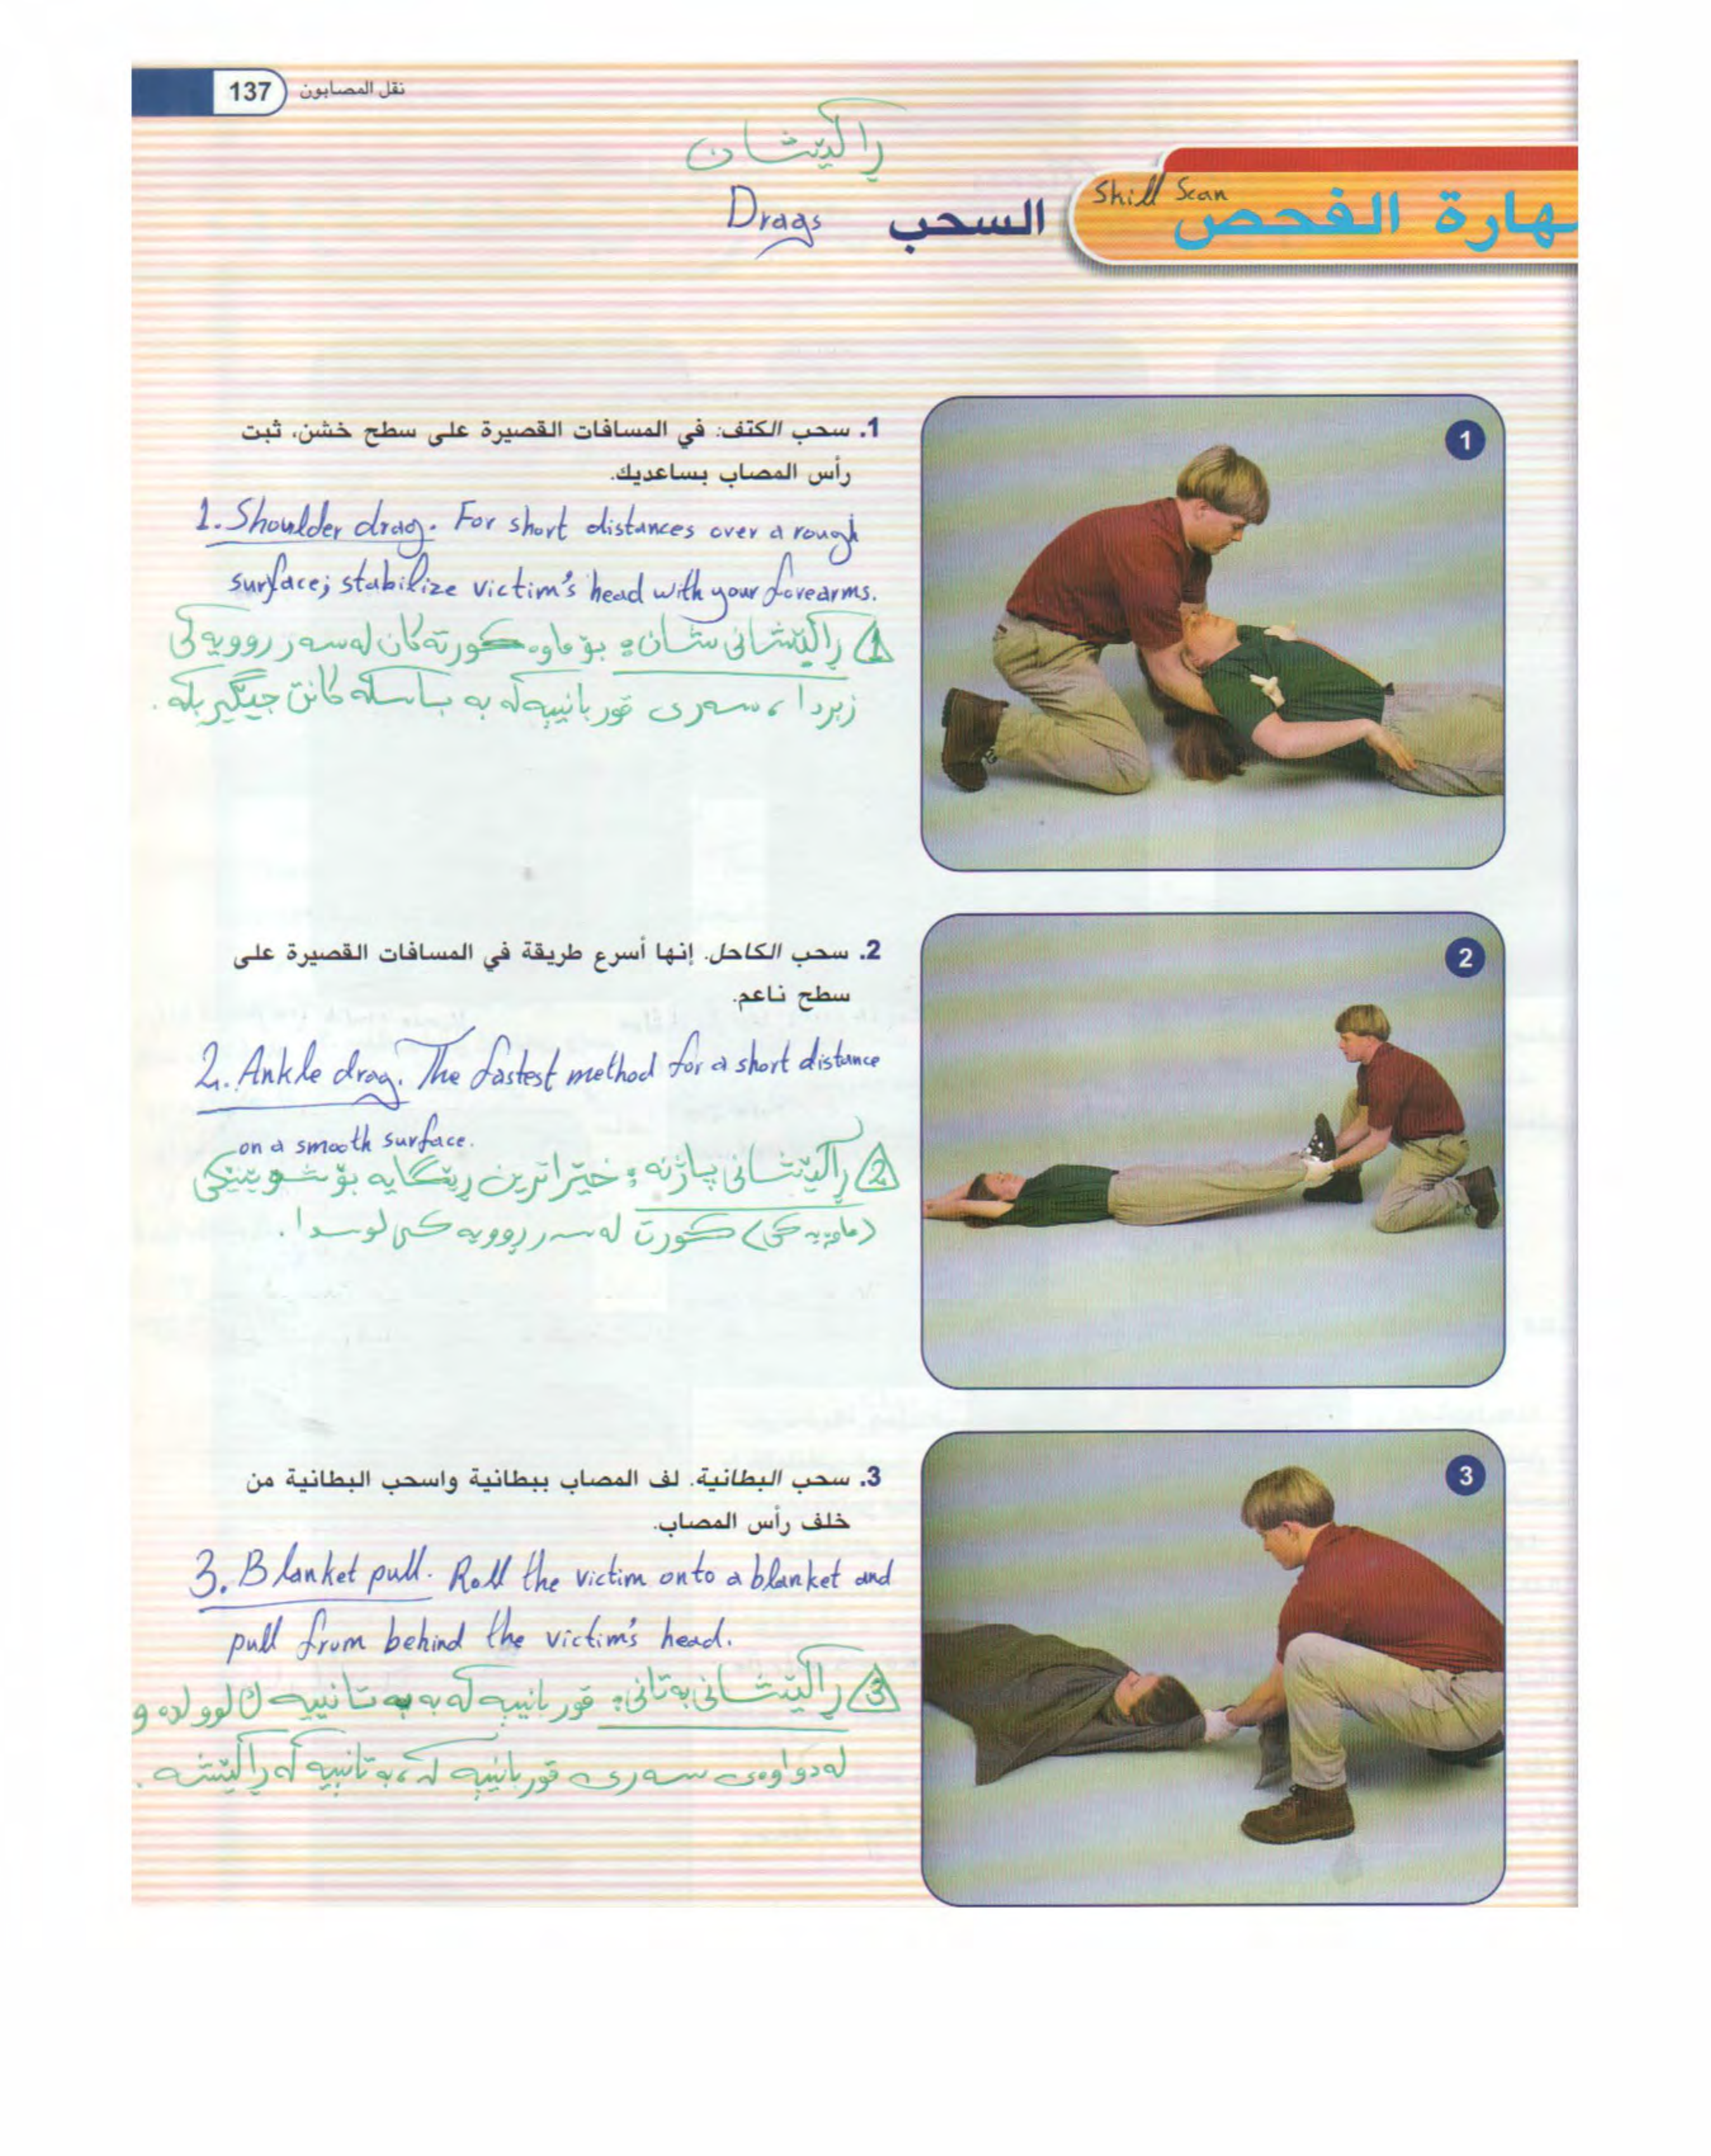 137 نقل المصابون
راكێشان
Skill Scan
مهارة الفحص
السحب
Drags
1
1. سحب الكتف: في المسافات القصيرة على سطح خشن، ثبت
رأس المصاب بساعديك.
1. Shoulder drag. For short distances over a rough
surface; stabilize victim's head with your forearms.
1 راكێشانی شان: بۆ ماوە کورتەکان لەسەر روویەکی
زبردا، سەری قوربانییەکە بە باسکەکانت جێگیر بکە.
2
2. سحب الكاحل. إنها أسرع طريقة في المسافات القصيرة على
سطح ناعم.
2. Ankle drag. The fastest method for a short distance
on a smooth surface.
2 راکێشانی پاژنە: خێراترین ریگایە بۆ شوێنێکی
(ماوەیەکی) کورت لەسەر روویەکی لوسدا.
3
3. سحب البطانية. لف المصاب ببطانية واسحب البطانية من
خلف رأس المصاب.
3. Blanket pull. Roll the victim onto a blanket and
pull from behind the victim's head.
3 راکێشانی بەتانی: قوربانییەکە بە بەتانییەک لوولدە و
لەدواوەی سەری قوربانییەکە، بەتانییەکە راکێشە.